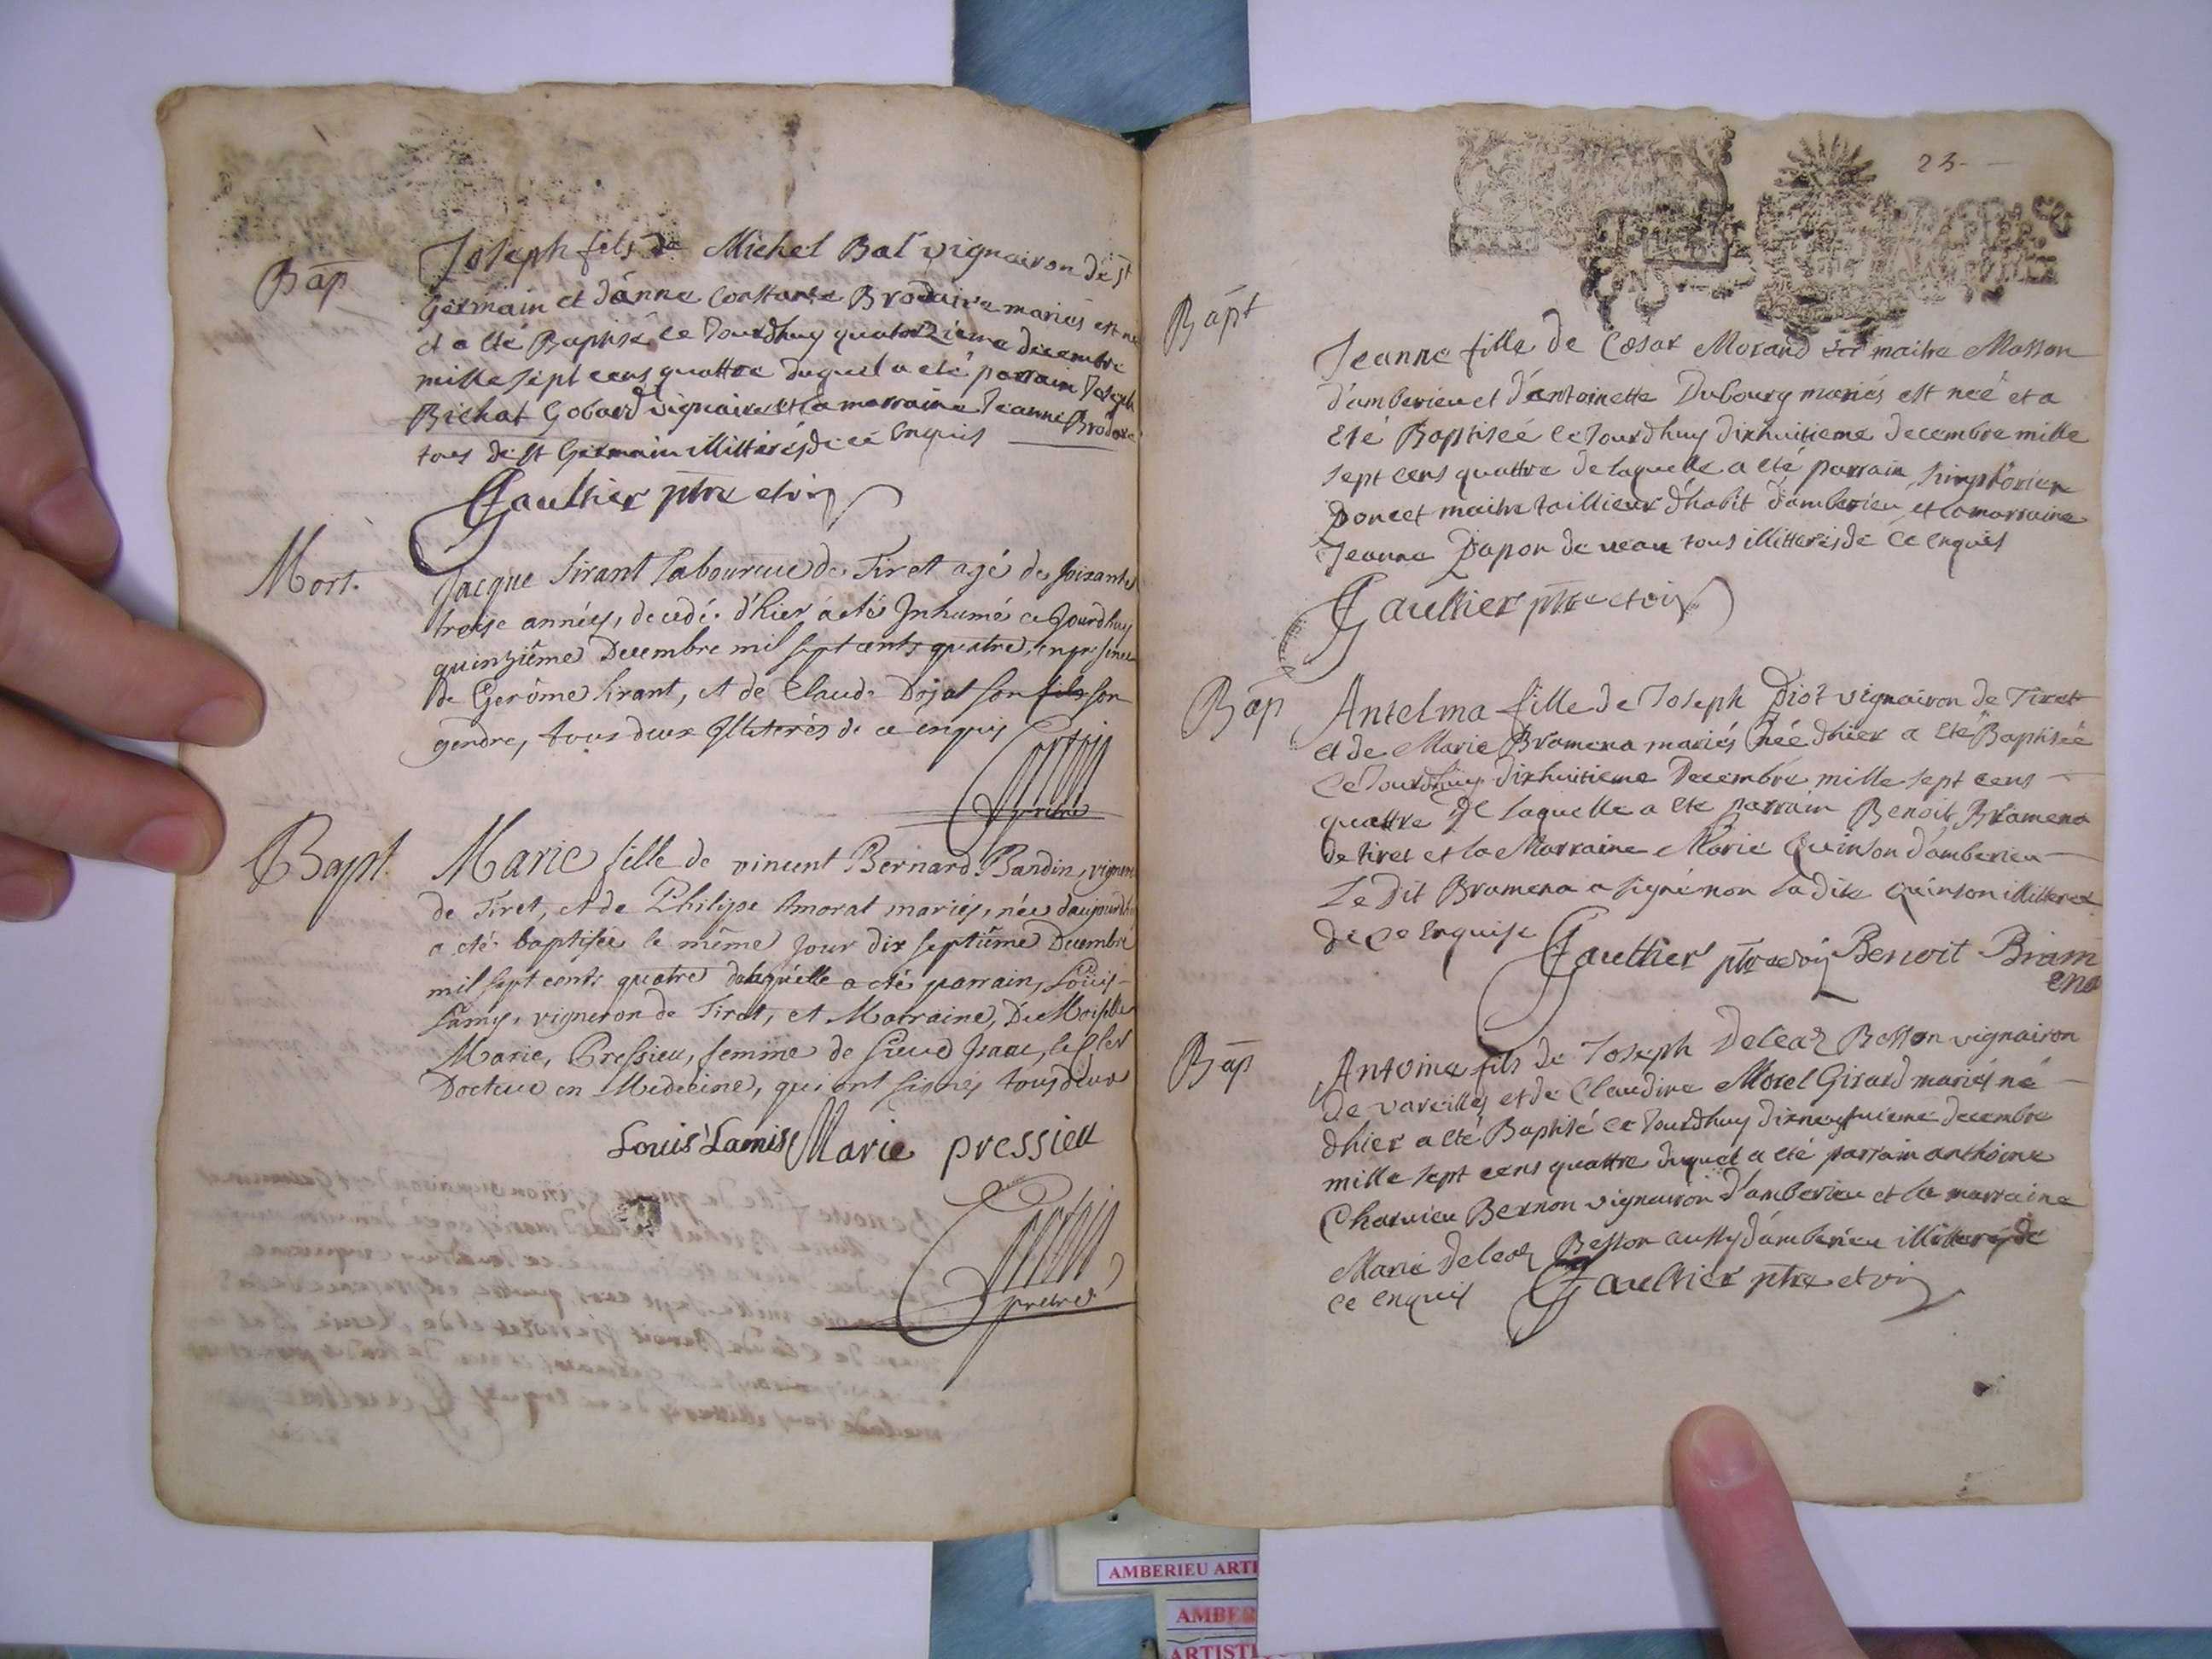 Bap
Joseph fils de Michel Bal vignairon de st
Germain et d'anne Constance Brodaire mariés est né
et a été Baptisé ce Jourdhuy quatorzieme decembre
mille sept cens quattre duquel a eté parrain Joseph
Bichat Gobard vignairon et la marraine Jeanne
tous de st Germain illitterés de ce enquis
Gaultier ptre et vic
Mort.
Jacque Sirant Laboureur de Tiret agé de soixante
treize années, decedé d'hier a eté Inhumé ce Jourdhuy
quinziême Decembre mil sept cents quatre, en presence
de Gerôme Sirant, et de Claude Dojat son fils son
gendre, tous deux Illiterés de ce enquis
prêtre
Bapt.
Marie fille de vincent Bernard Bandin, vigneron
de Tiret, et de Philipe Amorat mariés, née daujourdhuy
a eté baptisée le même Jour dix septiême Decembre
mil sept cents quatre de laquelle a eté parrain, Louis
Lamy, vigneron de Tiret, et Marraine, DeMoiselle
Marie, Pressieu, femme de sieur Isaac,
Docteur en Medecine, qui ont signés tous deux
Louis Lamis Marie pressieu
prêtre
23
Bapt
Jeanne fille de Cæsar Morand maitre Masson
d'amberieu et d'antoinette Dubourg mariés est neé et a
eté Baptiseé ce Jourdhuy dixhuitieme decembre mille
sept cens quattre de laquelle a eté parrain Simphorien
Doncet maitre taillieur d'habit d'amberieu et la marraine
Jeanne Papon de veau tous illitterés de ce enquis
Gaultier ptre et vic
Bap
Antelma fille de Joseph Diot vignairon de Tiret
et de Marie Bramena mariés née dhier a eté Baptiseé
ce Jourdhuy dixhuitieme Decembre mille sept cens
quattre de laquelle a eté parrain Benoit Bramena
de tiret et la Marraine Marie Quinson d'amberieu
Le dit Bramena a signé non la dite Quinson illiterée
de ce enquise
Gaultier ptre et vic Benoit Bram
ena
Bap
Antoine fils de Joseph Deleaz Besson vignairon
de vareilles et de Claudine Morel Girard mariés né
dhier a eté Baptisé ce Jourdhuy dixneufvieme decembre
mille sept cens quattre duquel a eté parrain anthoine
Charvieu Bernon vignairon d'amberieu et la marraine
Marie deleaz Besson aussy d'amberieu illitterés de
ce enquis
Gaultier ptre et vic
AMBERIEU ARTI
AMBER
ARTISTI